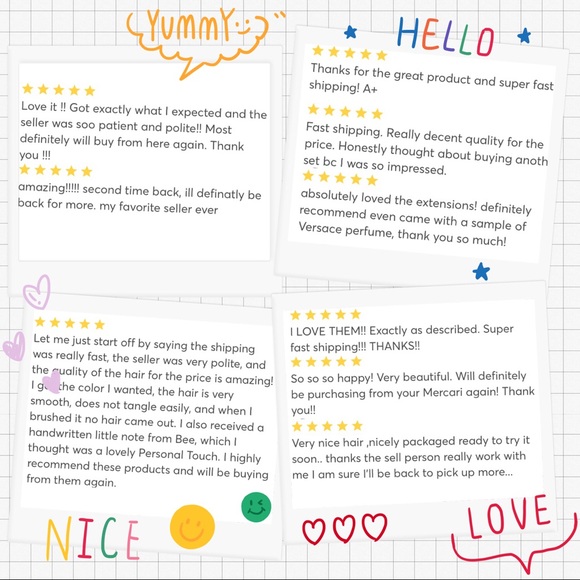 YUMMY
Love it !! Got exactly what I expected and the
seller was soo patient and polite!! Most
definitely will buy from here again. Thank
you !!!
amazing!!!!! second time back, ill definatly be
back for more. my favorite seller ever
HELLO
Thanks for the great product and super fast
shipping! A+
Fast shipping. Really decent quality for the
price. Honestly thought about buying anoth
set bc I was so impressed.
absolutely loved the extensions! definitely
recommend even came with a sample of
Versace perfume, thank you so much!
Let me just start off by saying the shipping
was really fast, the seller was very polite, and
the quality of the hair for the price is amazing!
I got the color I wanted, the hair is very
smooth, does not tangle easily, and when I
brushed it no hair came out. I also received a
handwritten little note from Bee, which I
thought was a lovely Personal Touch. I highly
recommend these products and will be buying
from them again.
NICE
I LOVE THEM!! Exactly as described. Super
fast shipping!!! THANKS!!
So so so happy! Very beautiful. Will definitely
be purchasing from your Mercari again! Thank
you!!
Very nice hair ,nicely packaged ready to try it
soon.. thanks the sell person really work with
me I am sure I'll be back to pick up more...
LOVE